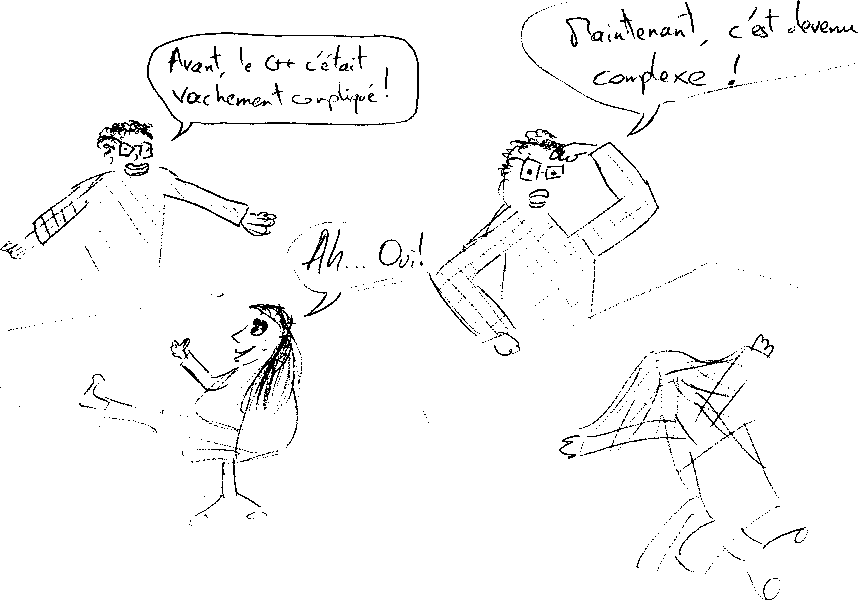 Avant, le C++ c'était
vachement compliqué !
Maintenant, c'est devenu
complexe !
Ah... Oui!